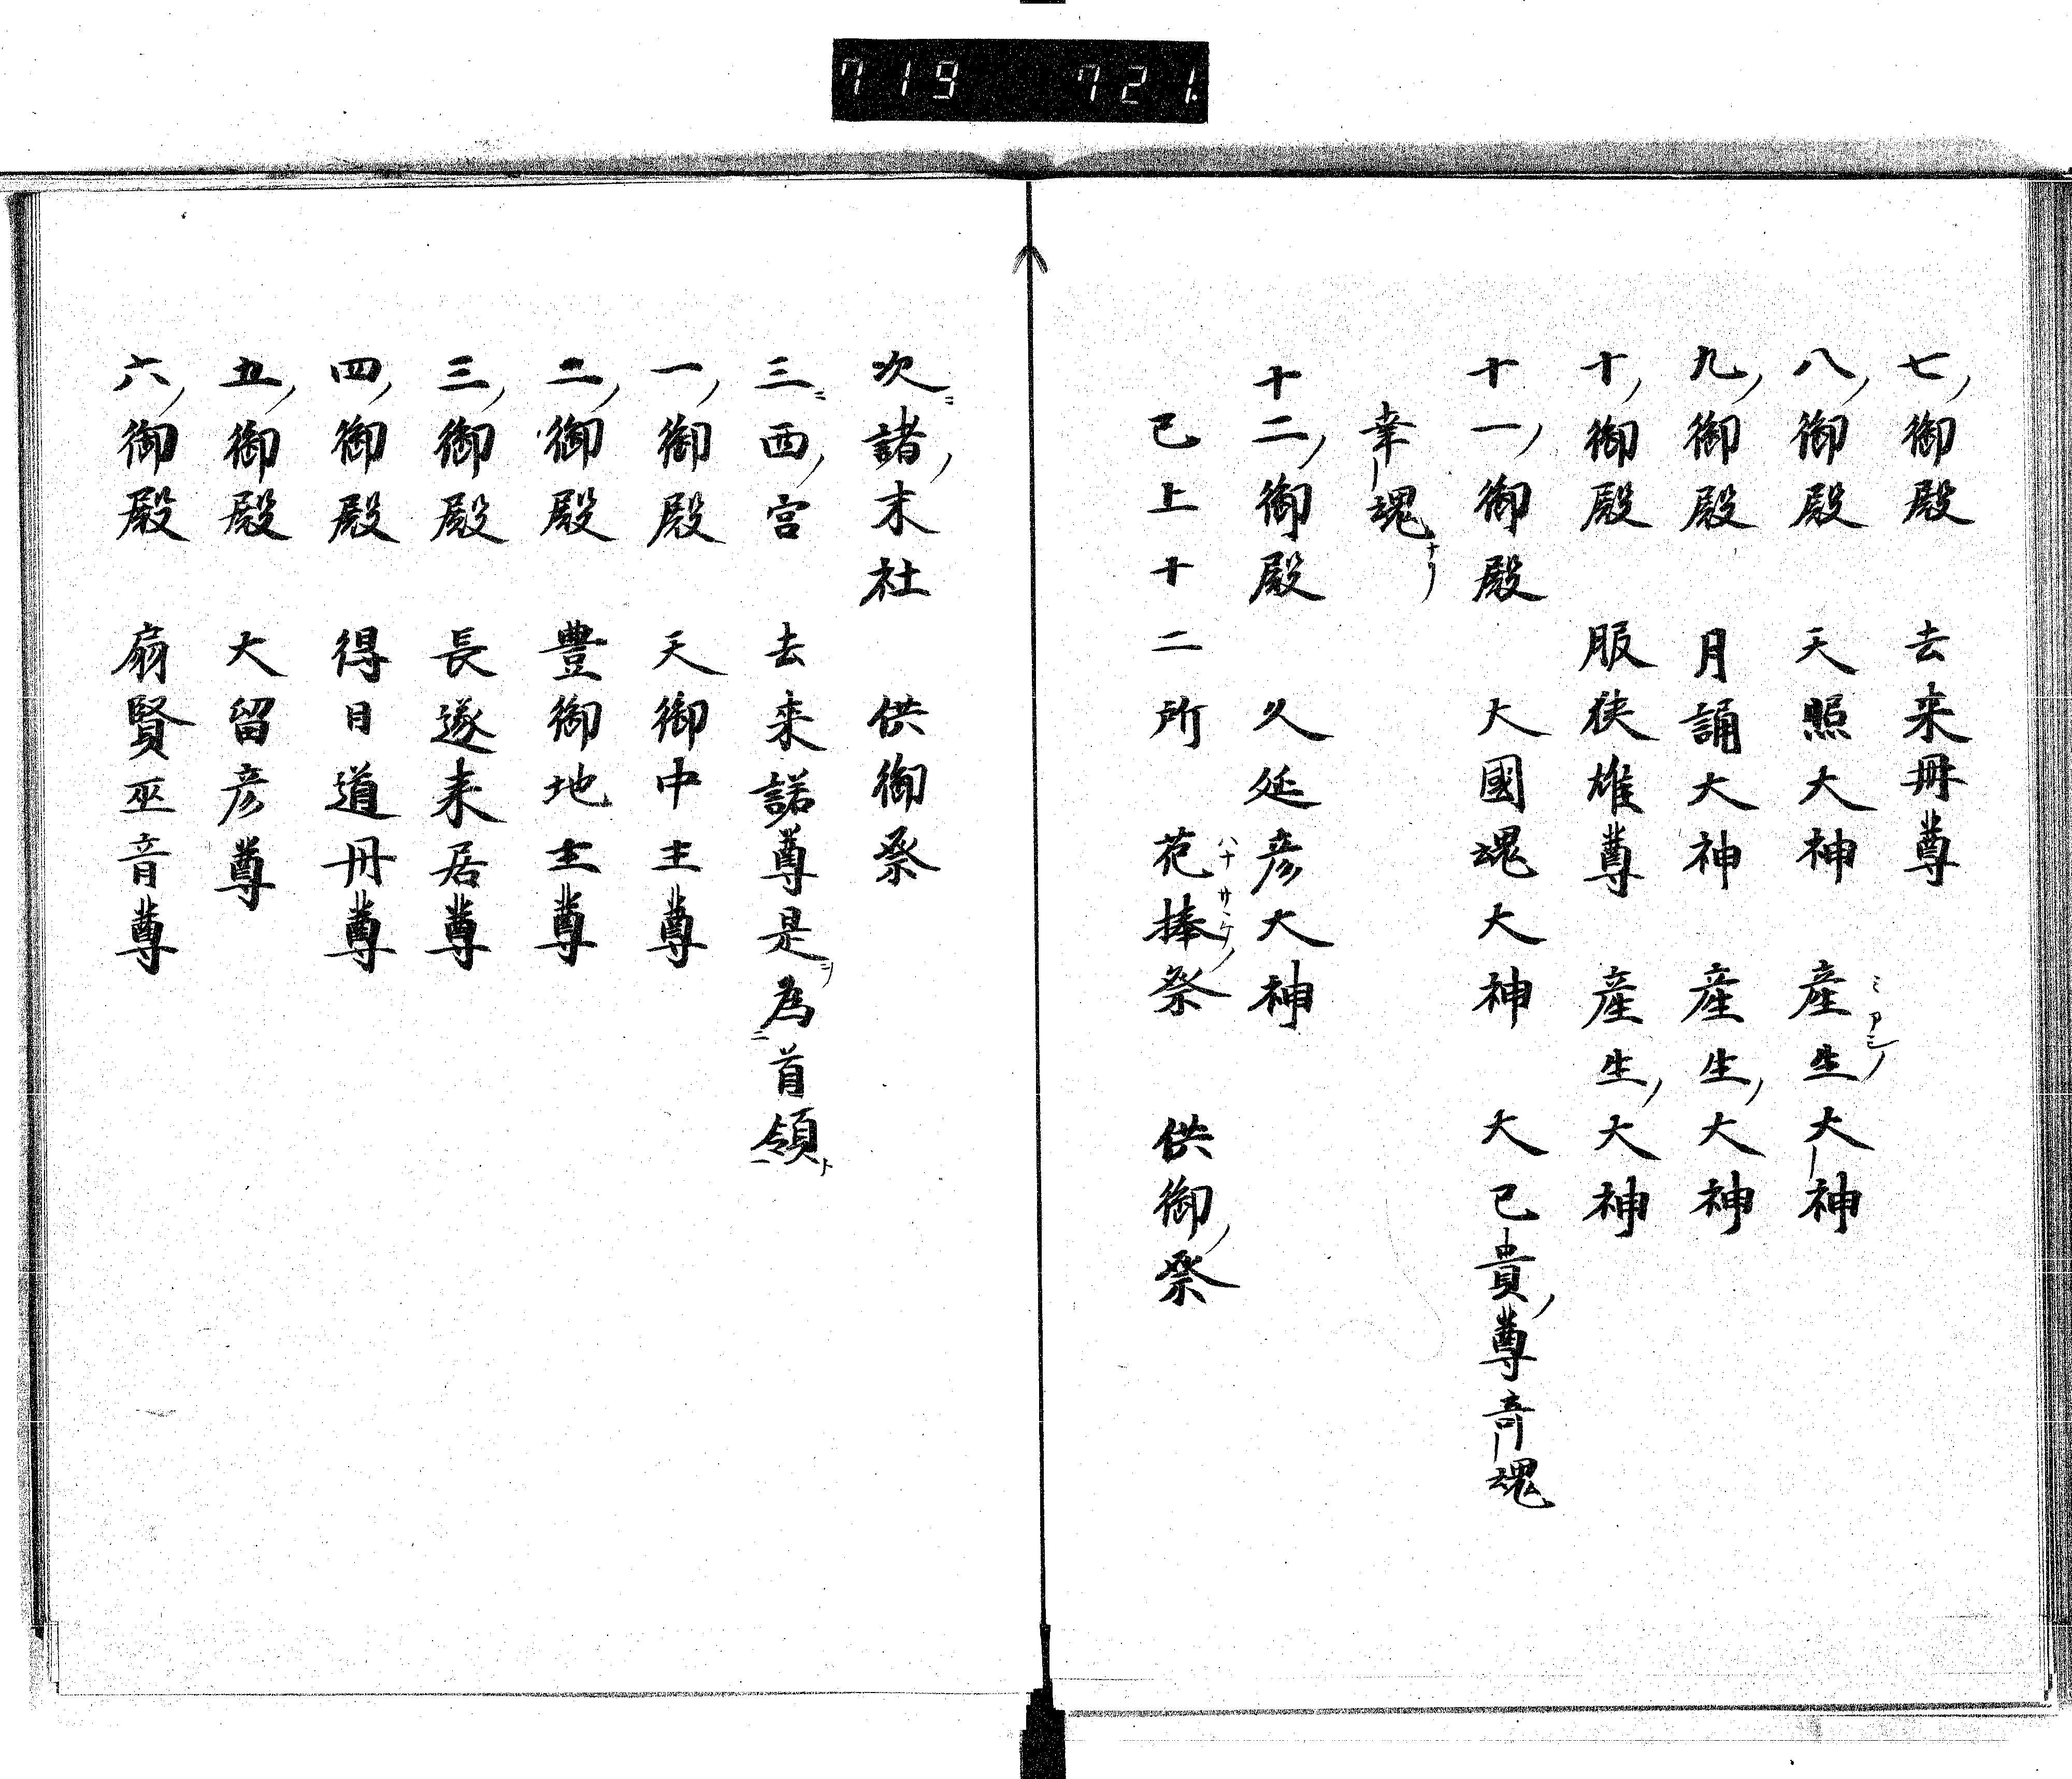 719 721
七ノ御殿 去来冊尊
八ノ御殿 天照大神 産生ノ大神
ミアレノ
九ノ御殿 月誦大神 産生ノ大神
十ノ御殿 服狭雄尊 産生ノ大神
十一ノ御殿 大國魂大神 大己貴ノ尊奇魂
幸魂ナリ
十二ノ御殿 久延彦大神
已上十二所 花捧祭 供御ノ祭
ハナサヽケノ
次ニ諸ノ末社 供御祭
三ニ西ノ宮 去来諾尊是ヲ為首領ト
一ノ御殿 天御中主尊
二ノ御殿 豊御地主尊
三ノ御殿 長遂耒居尊
四ノ御殿 得日道冊尊
五ノ御殿 大留彦尊
六ノ御殿 扇賢巫音尊